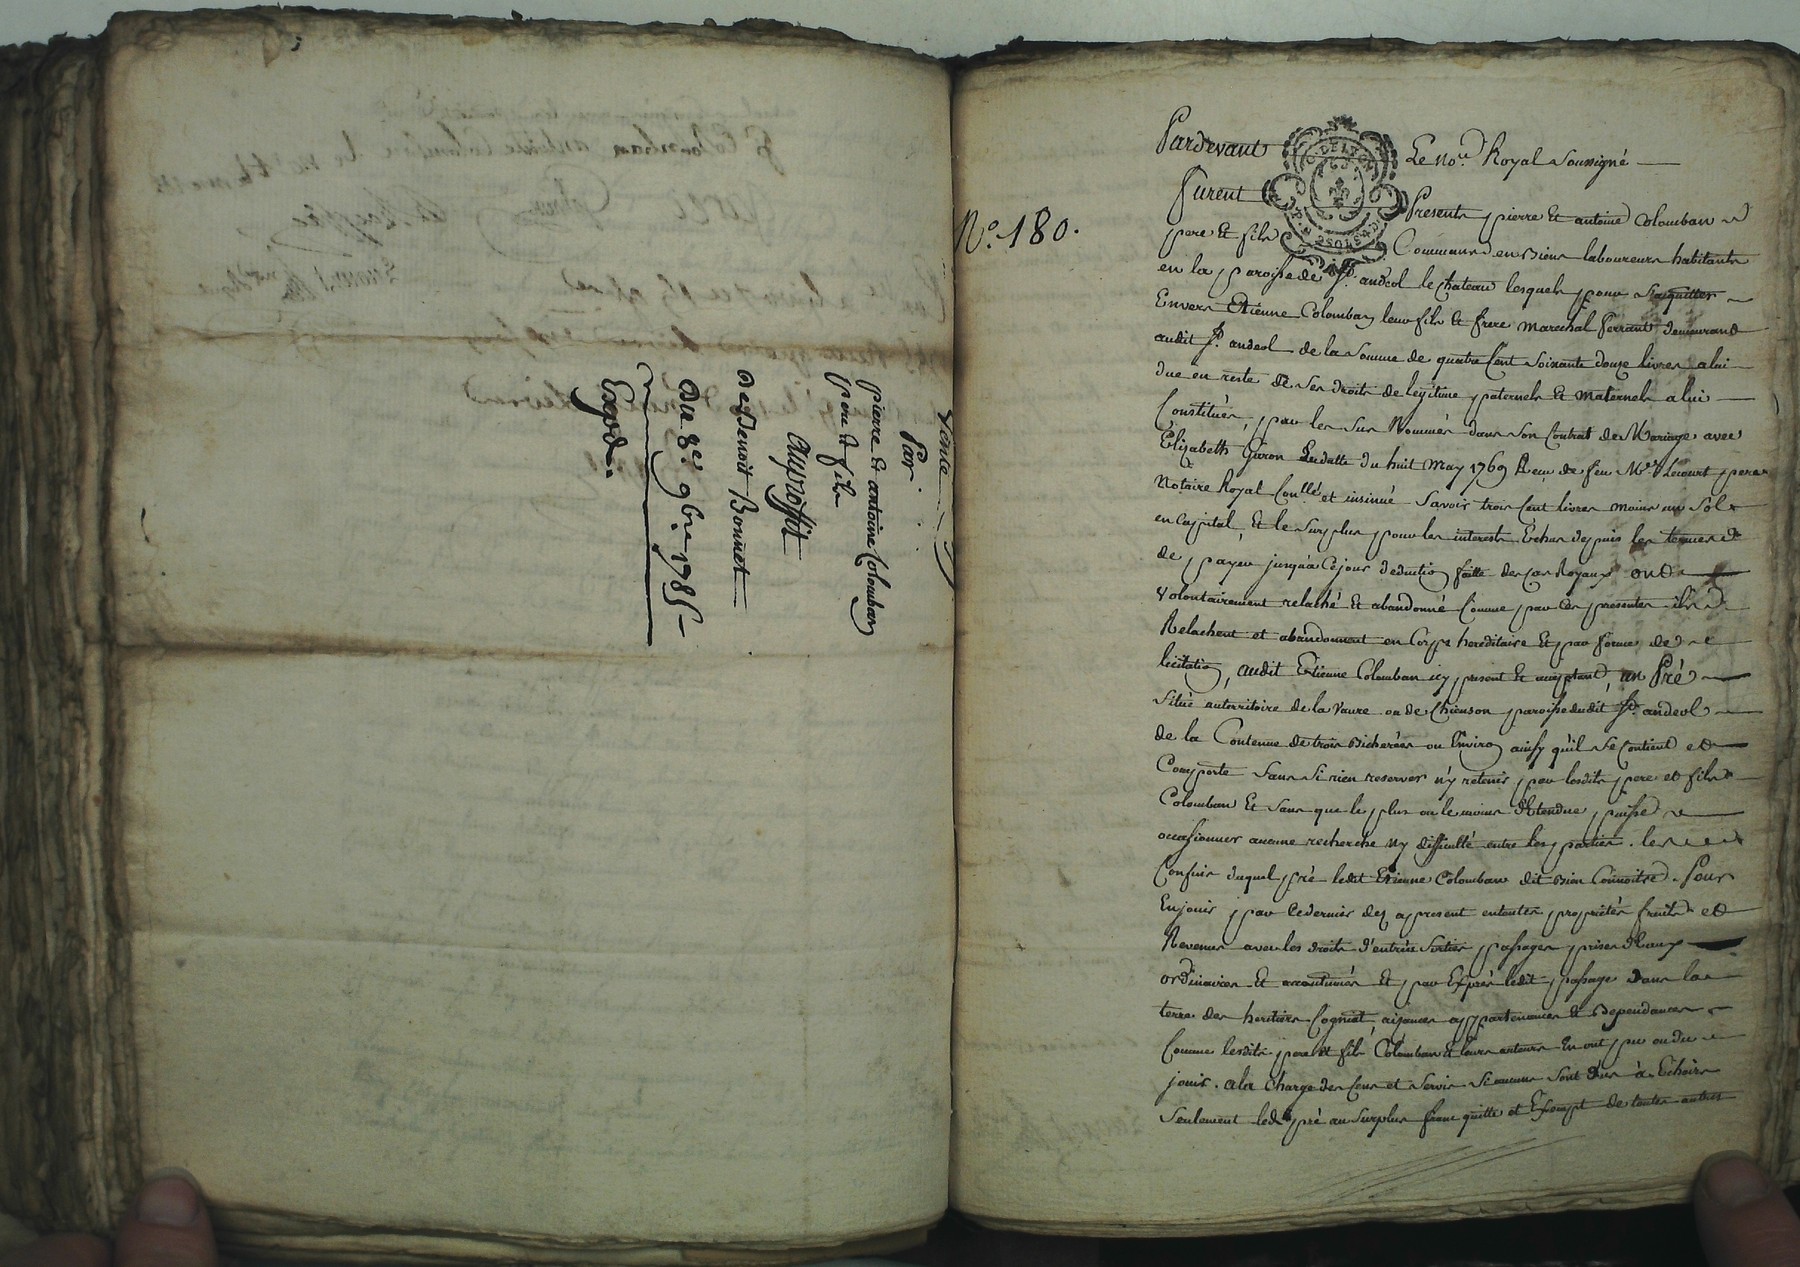 Vente
Par
pierre et antoine Colomban
pere et fils
au proffit
de Benoit Bonnet
Du 8e. 9bre 1785
Expd.
No. 180.
Pardevant Le nore. Royal Soussigné
furent Presents pierre et antoine Colomban
pere et fils Commune en biens laboureurs habitants
en la paroisse de St. andéol le chateau lesquels pour s'aquitter
Envers Etienne Colomban leur fils et frere marechal ferrant demeurant
audit St. andeol de la Somme de quatre Cent soixante douze livres a lui
due en reste de ses droits de legitime paternels et maternels a lui
Constitués, par les sus Nommés dans son Contrat de Mariage avec
Elizabeth Guron en datte du huit may 1769 Reçu de feu Me. Lecourt pere
Notaire Royal Conllé et insinué Savoir trois Cent livres moins un Sol
en capital, et le surplus pour les interests Echus depuis les termes
de payer jusqu'a Cejour deduction faitte des cas Royaux ont
volontairement relaché et abandonné Comme par ces presentes ils
Relachent et abandonnent en Corps hereditaire et par forme de
licitation, audit Etienne Colomban icy present et acceptant, un Pré
Situé au territoire de la vaure ou de Chienson paroisse dudit St. andeol
de la Contenue de trois bicherées ou Environ ainsy qu'il se Contient et
Comporte Sans Si rien reserver n'y retenir par lesdits pere et fils
Colomban Et sans que le plus ou le moins d'Etendue puisse
occasionner aucune recherche ny difficulté entre les parties. les
Confins duquel pré ledit Etienne Colomban dit bien Connoitre. Pour
En jouir par Ce dernier dez apresent en toutes proprietés fruits et
Revenus avec les droits d'entrées Sorties passages prises d'Eaux
ordinaires et accoutumés Et par Exprès ledit passage dans la
terre des heritiers Cogniat, aisances appartenances et dependances
Comme lesdits pere et fils Colomban et leurs auteurs En ont pu ou du
jouir. a la charge des Cens et servis Si aucuns sont dûs à Echoir
Seulement led. pré au surplus franc quitte et Exempt de toutes autres